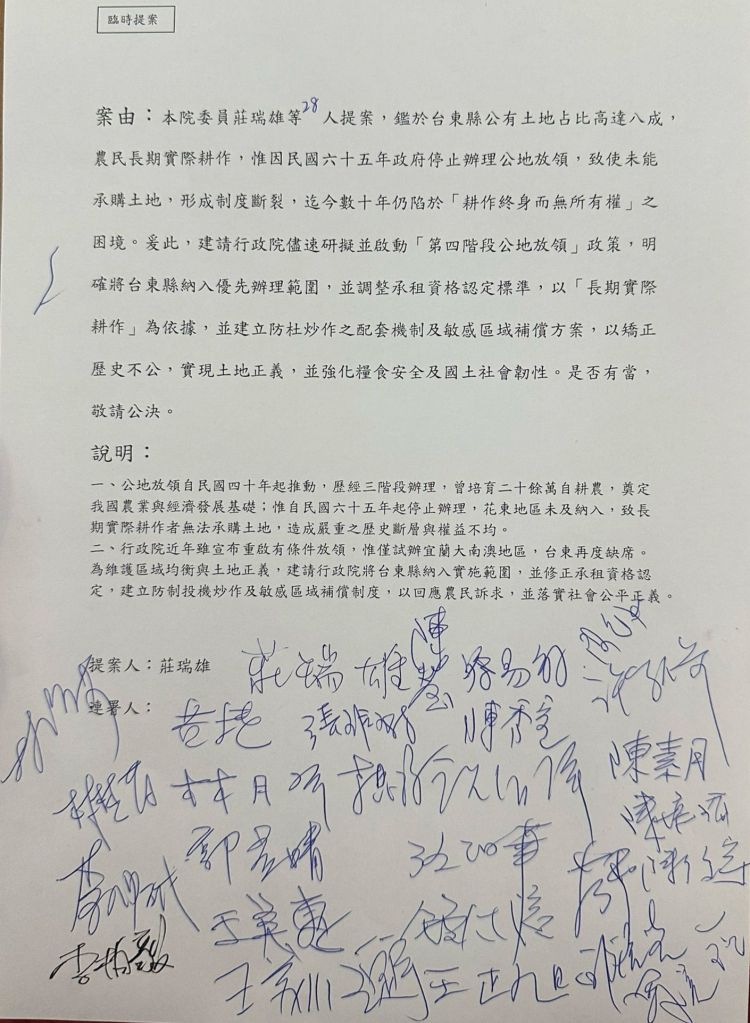 臨時提案
案由：本院委員莊瑞雄等28人提案，鑑於台東縣公有土地占比高達八成，
農民長期實際耕作，惟因民國六十五年政府停止辦理公地放領，致使未能
承購土地，形成制度斷裂，迄今數十年仍陷於「耕作終身而無所有權」之
困境。爰此，建請行政院儘速研擬並啟動「第四階段公地放領」政策，明
確將台東縣納入優先辦理範圍，並調整承租資格認定標準，以「長期實際
耕作」為依據，並建立防杜炒作之配套機制及敏感區域補償方案，以矯正
歷史不公，實現土地正義，並強化糧食安全及國土社會韌性。是否有當，
敬請公決。
說明：
一、公地放領自民國四十年起推動，歷經三階段辦理，曾培育二十餘萬自耕農，奠定
我國農業與經濟發展基礎；惟自民國六十五年起停止辦理，花東地區未及納入，致長
期實際耕作者無法承購土地，造成嚴重之歷史斷層與權益不均。
二、行政院近年雖宣布重啟有條件放領，惟僅試辦宜蘭大南澳地區，台東再度缺席。
為維護區域均衡與土地正義，建請行政院將台東縣納入實施範圍，並修正承租資格認
定，建立防制投機炒作及敏感區域補償制度，以回應農民訴求，並落實社會公平正義。
提案人：莊瑞雄 莊瑞雄
連署人： 黃捷 陳秀寳
林月琴 陳素月
郭昱晴 陳培瑜
李柏毅 王義川 王正旭